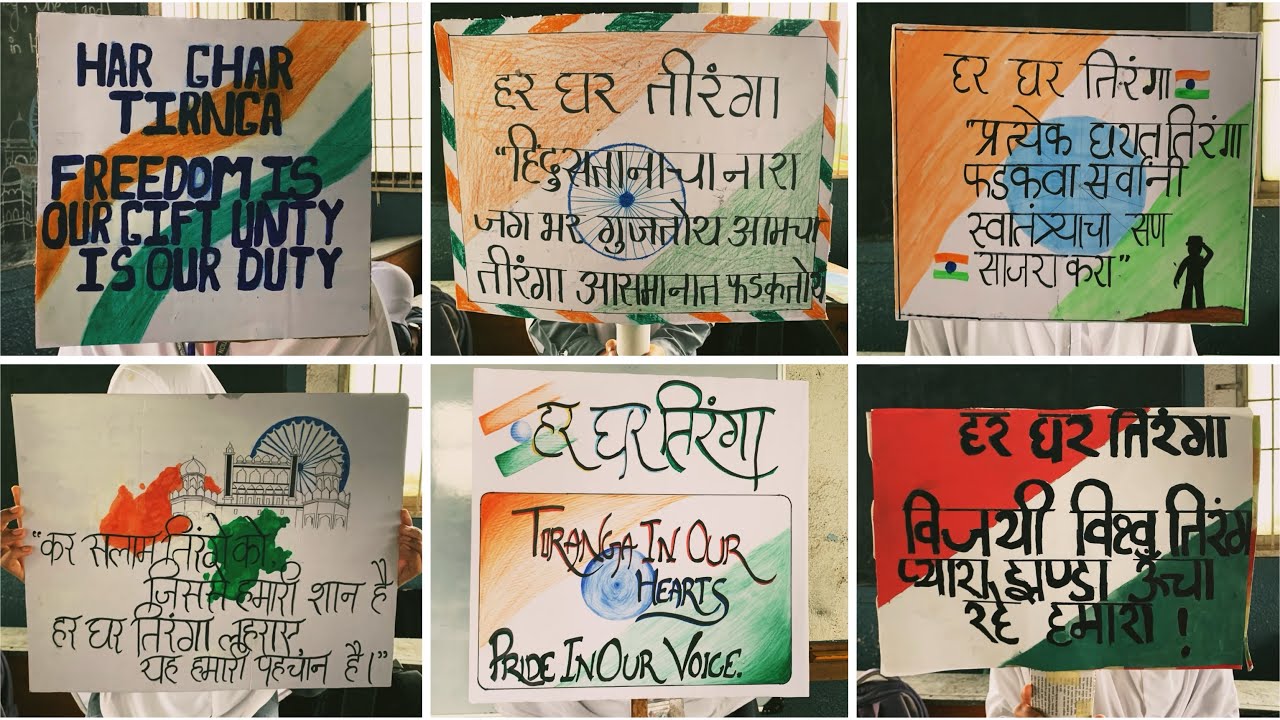 HAR GHAR
TIRNGA
FREEDOM IS
OUR GIFT UNTY
IS OUR DUTY
हर घर तीरंगा
"हिंदुसतानाचा नारा
जग भर गुजतोय आमचा
तीरंगा आसमानात फडकतोय
हर घर तिरंगा
"प्रत्येक घरात तिरंगा
फडकवा सर्वांनी
स्वातंत्र्याचा सण
साजरा करा"
"कर सलाम तिरंगे को
जिससे हमारी शान है
हर घर तिरंगा लहराए
यह हमारी पहचान है।"
हर घर तिरंगा
TIRANGA IN OUR
HEARTS
PRIDE IN OUR VOICE.
हर घर तिरंगा
विजयी विश्व तिरंगा
प्यारा, झण्डा ऊँचा
रहे हमारा !